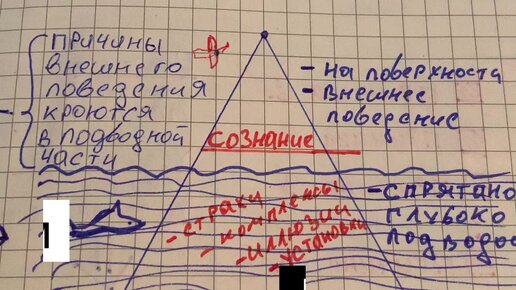 причины
внешнего
поведения
кроются
в подводной
части
сознание
- на поверхности
- внешнее
поведение
- страхи
- комплексы
- иллюзии
- установки
- спрятано
глубоко
под водой